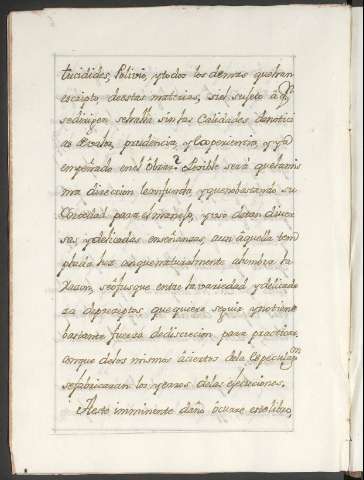 tucidides, Polivio, y todos los demas que han
escripto, deestas materias, siel sugeto à q.n
sedirigen sehalla sin las Calidades denotici
as Exactas, prudencia, y Experiencia, y ya
empeñado en el Obrar? Posible será quelamis
ma direccion leconfunda, y que no bastando su
Cortedad para el manejo, y uso detan diver
sas, y delicadas enseñanzas, aun aquella tem
plada luz conque naturalmente alumbra la
Razon, seofusque entre la variedad y delicade
za depreceptos, que quiere seguir y no tiene
bastante fuerza dediscrecion para practicar,
conque delos mismos Aciertos dela Especulaz.on
sefabricaran los yerros delas ejecuciones.
A este imminente daño ôcurre este libro,